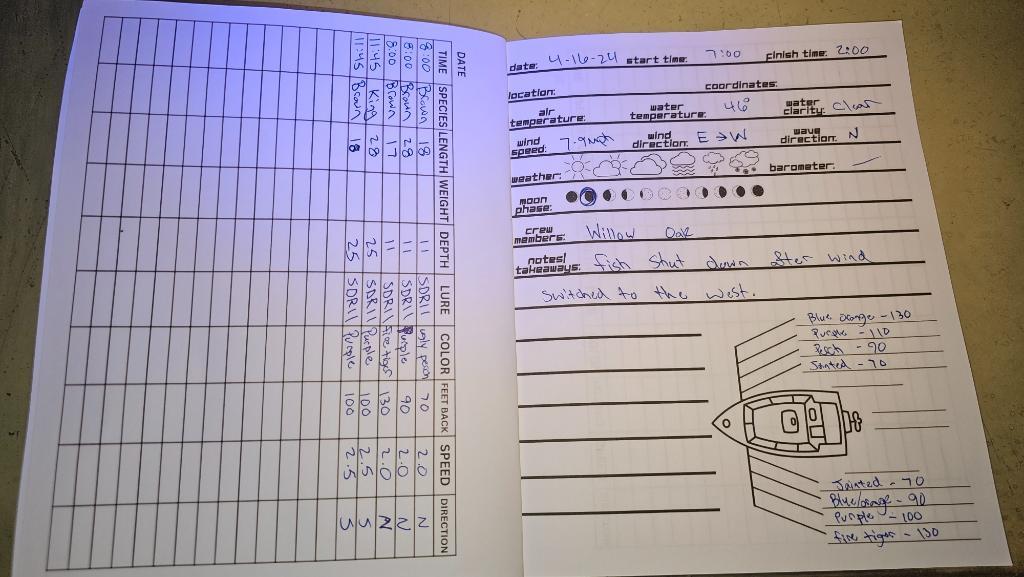 DATE
TIME SPECIES LENGTH WEIGHT DEPTH LURE COLOR FEET BACK SPEED DIRECTION
8:00 Brown 18 11 SDR11 ugly peach 70 2.0 N
8:00 Brown 28 11 SDR11 Purple 90 2.0 N
8:00 Brown 17 11 SDR11 fire tiger 130 2.0 N
11:45 King 28 25 SDR11 Purple 100 2.5 S
11:45 Brown 18 25 SDR11 Purple 100 2.5 S
date: 4-16-24 start time: 7:00 finish time: 2:00
location: coordinates:
air temperature: water temperature: 46° water clarity: Clear
wind speed: 7-9mph wind direction: E → W wave direction: N
weather: barometer: —
moon phase:
crew members: Willow Oak
notes/ takeaways: fish shut down after wind
switched to the west.
Blue orange - 130
Purple - 110
Peach - 90
Jointed - 70
Jointed - 70
Blue/orange - 90
Purple - 100
fire tiger - 130